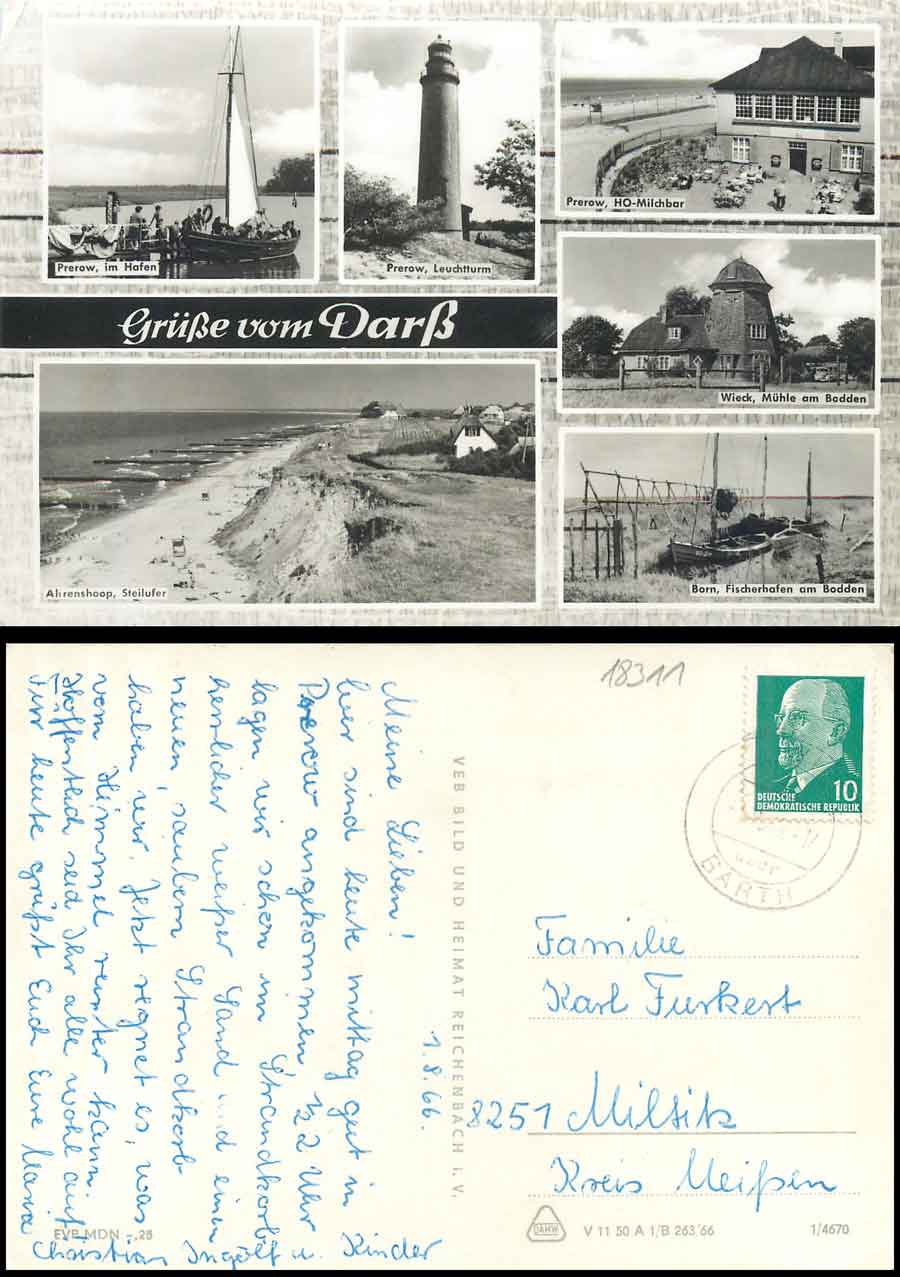 Prerow, im Hafen
Prerow, Leuchtturm
Prerow, HO-Milchbar
Grüße vom Darß
Wieck, Mühle am Bodden
Ahrenshoop, Steilufer
Born, Fischerhafen am Bodden
18311
DEUTSCHE
DEMOKRATISCHE REPUBLIK
10
BARTH
1.8.66.
Meine Lieben!
Wir sind heute mittag gut in
Prerow angekommen, ½ 2 Uhr
lagen wir schon im Strandkorb,
herrlicher weißer Sand und einen
neuen saubern Strandkorb
haben wir. Jetzt regnet es, was
vom Himmel runter kann.
Hoffentlich seid Ihr alle wohlauf
Für heute grüßt Euch Eure Maria
Christian Ingolf u. Kinder
VEB BILD UND HEIMAT REICHENBACH I. V.
Familie
Karl Furkert
8251 Miltitz
Kreis Meißen
EVP MDN -,25
DAHW
V 11 50 A 1/B 263/66
1/4670